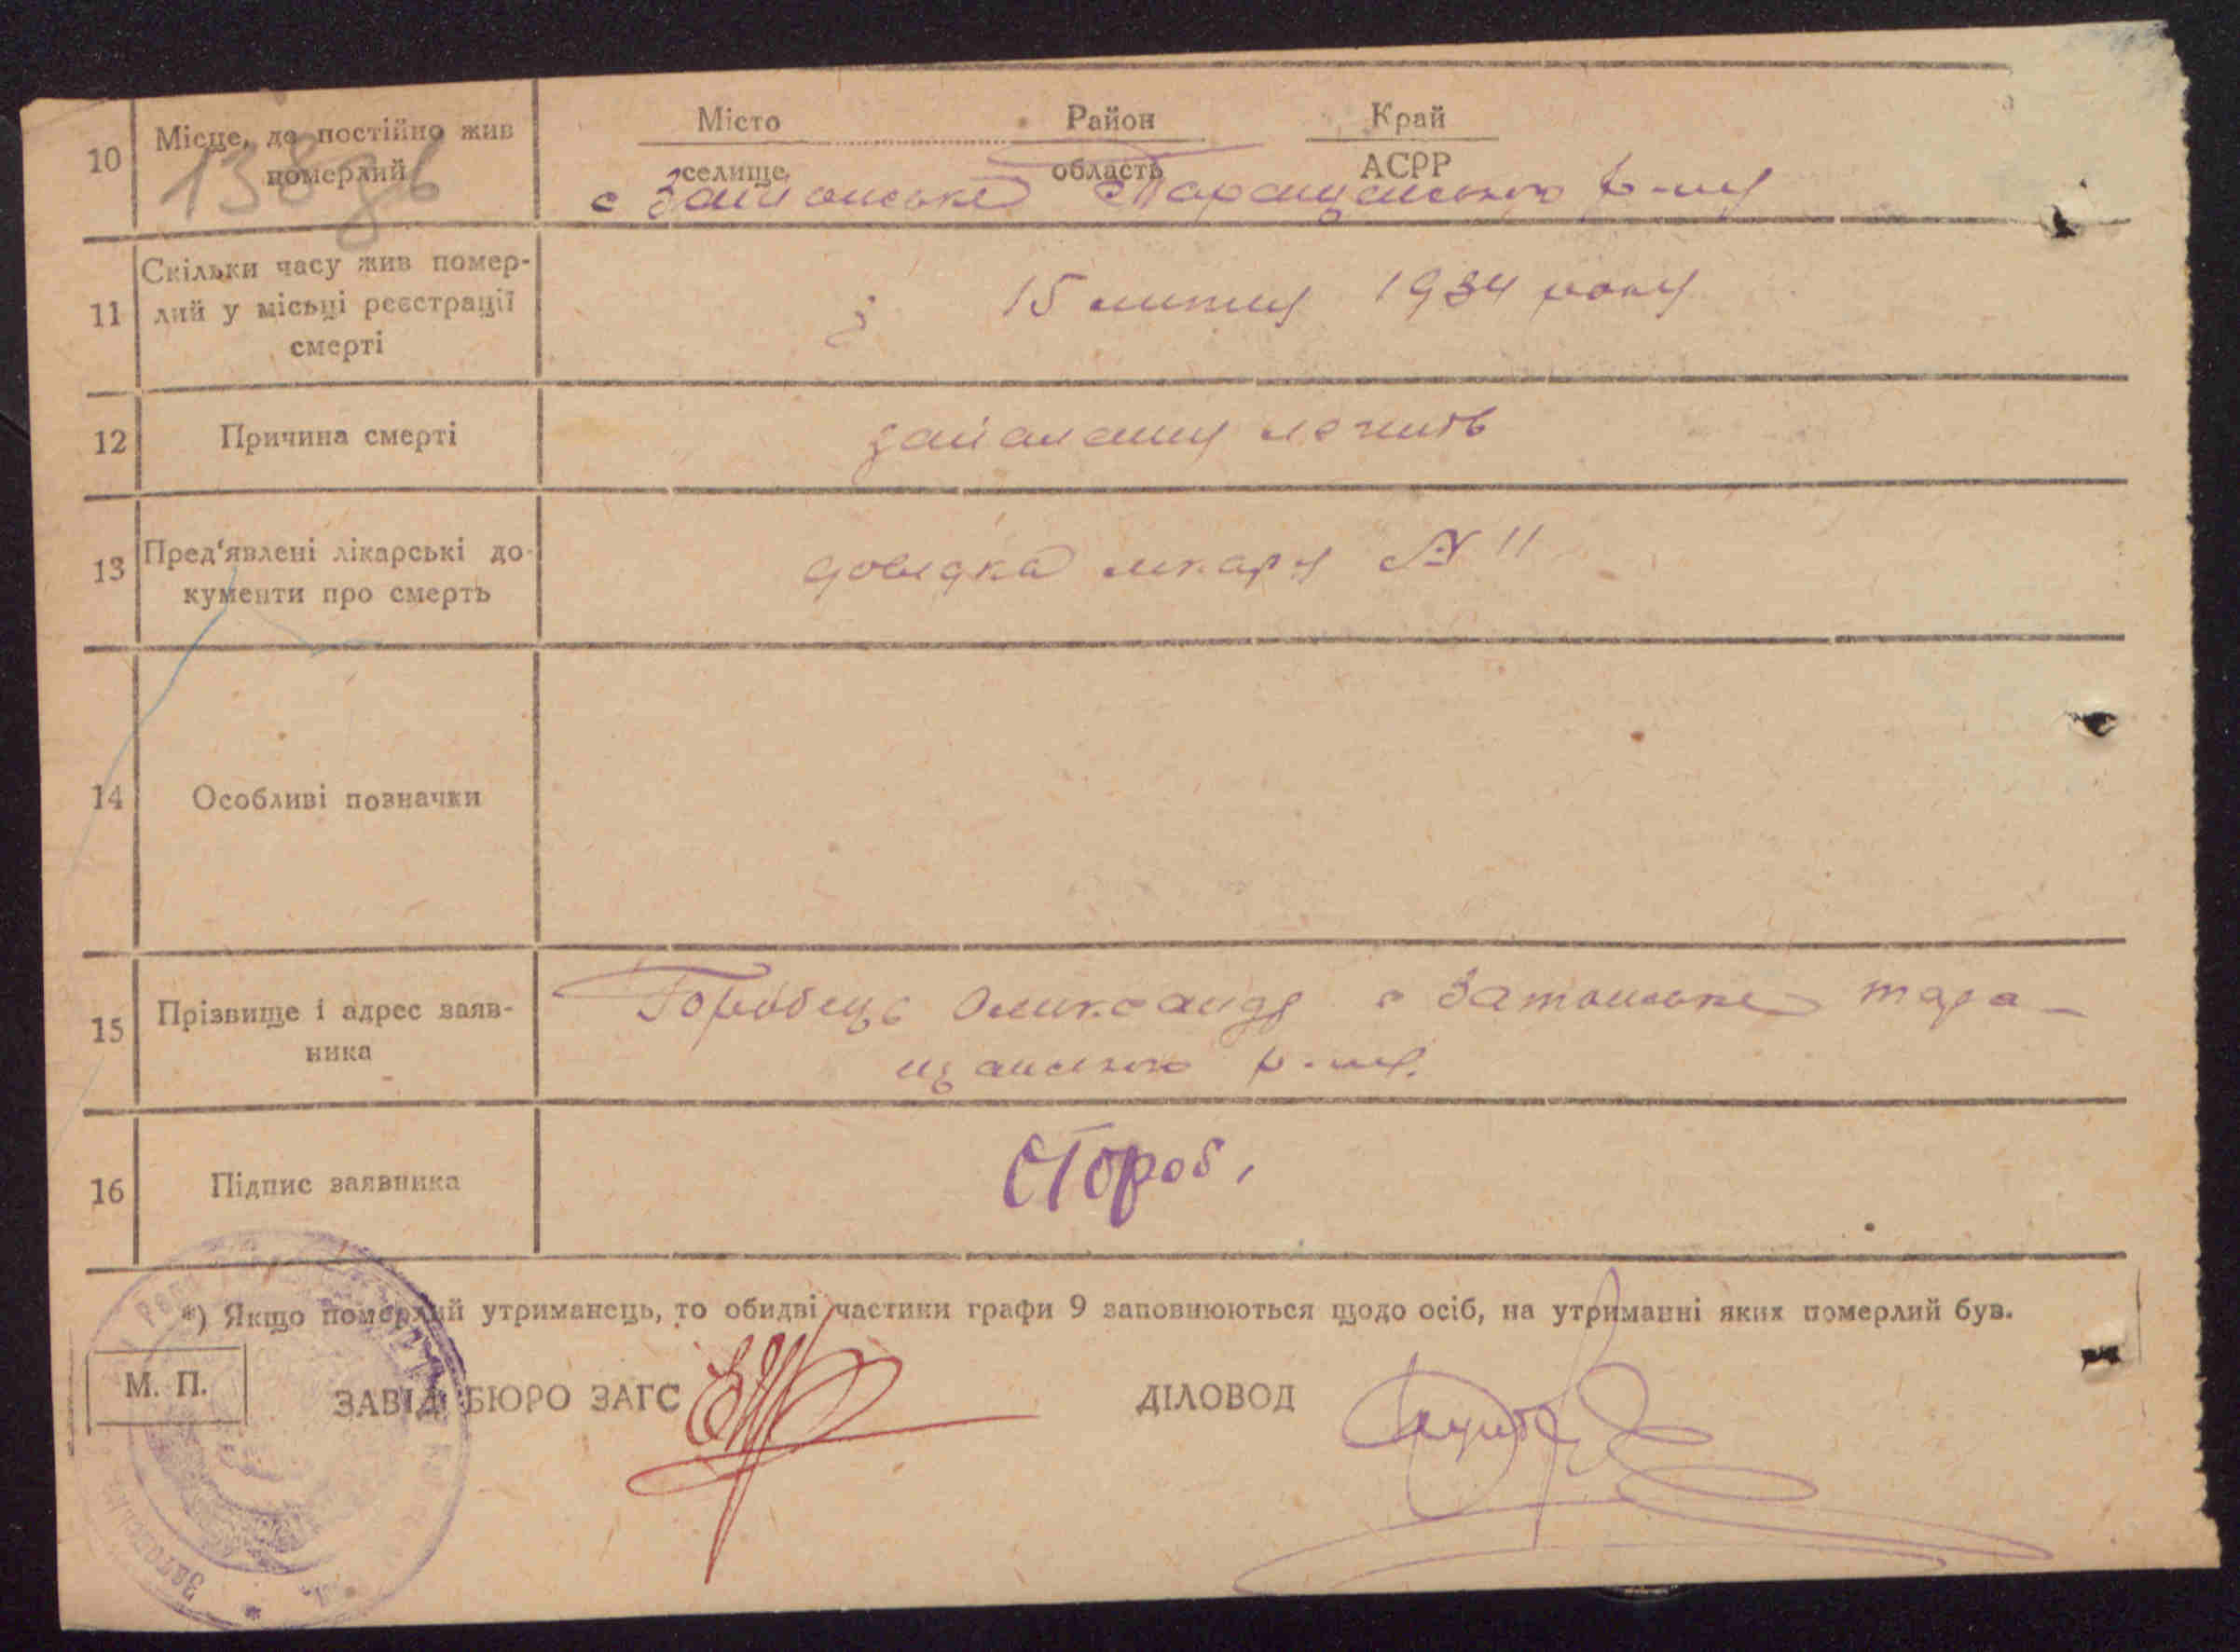 10 Місце, де постійно жив померлий
138
Місто Район Край
селище область АСРР
с Затонське Таращанського р-ну
11 Скільки часу жив помер-
лий у місьці реєстрації
смерті
з 15 липня 1934 року
12 Причина смерті запалення легнів
13 Пред'явлені лікарські до-
кументи про смерть
довідка лікаря № 11
14 Особливі позначки
15 Прізвище і адрес заяв-
ника
Горобець Олександр с Затонське тара-
щанського р-ну.
16 Підпис заявника Гороб.
*) Якщо померлий утриманець, то обидві частини графи 9 заповнюються щодо осіб, на утриманні яких померлий був.
М. П. ЗАВІД. БЮРО ЗАГС ДІЛОВОД